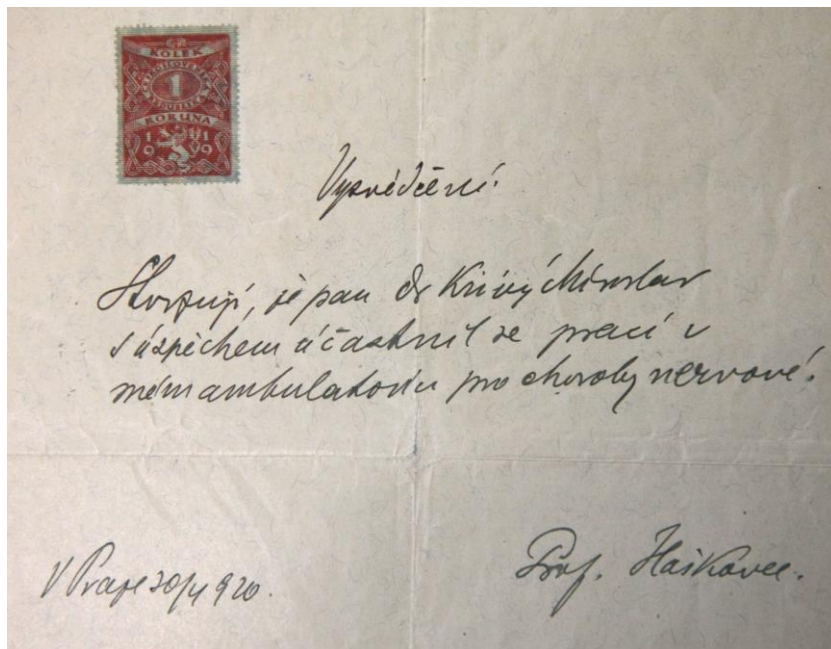 KOLEK
ČESKOSLOVENSKÁ
1
REPUBLIKA
KORUNA
1919
Vysvědčení.
Stvrzuji, že pan dr Křivý Miroslav
s úspěchem účastnil se prací v
mém ambulatoriu pro choroby nervové.
V Praze 920.
Prof. Haškovec.